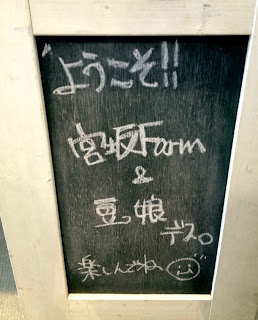 ようこそ!!
宮坂Farm
&
豆っ娘
デス。
楽しんでね〜